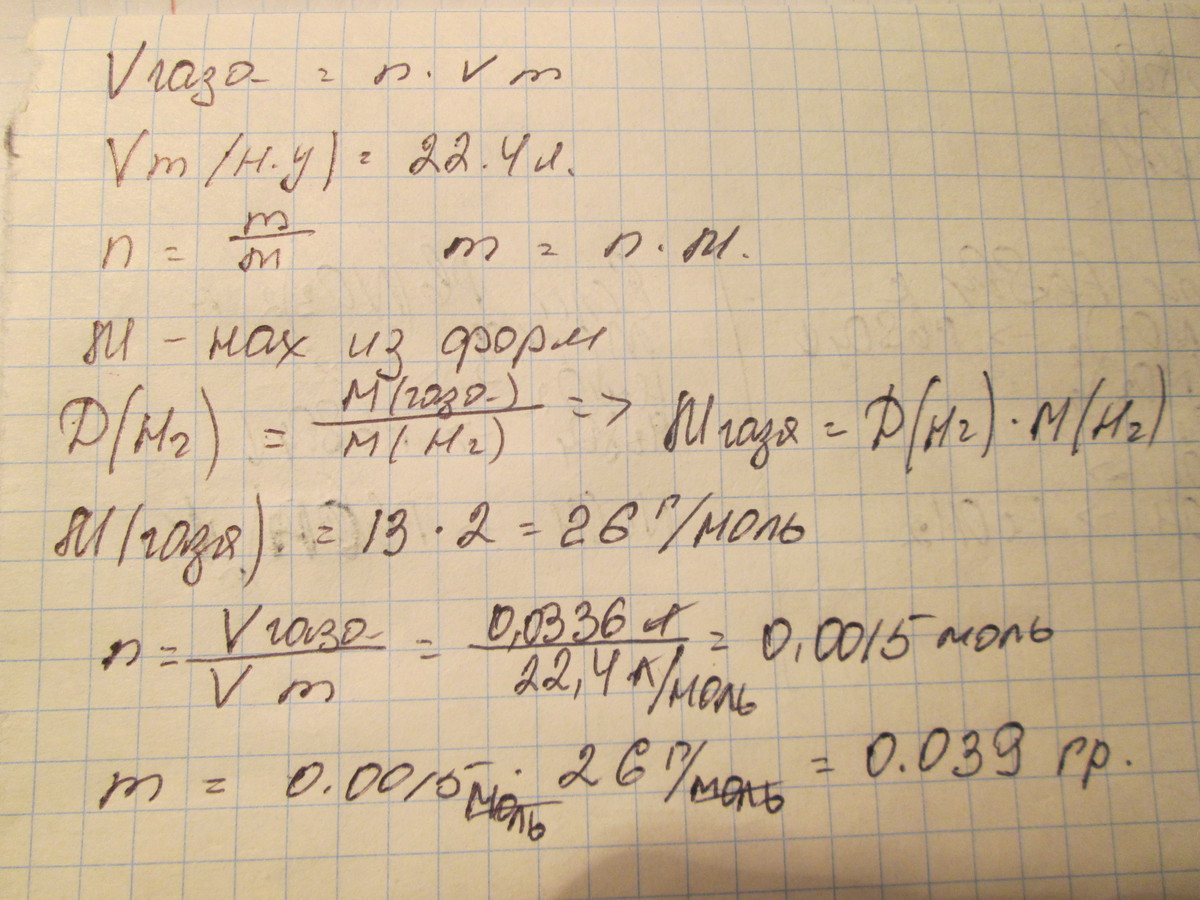 V газа = n · V m
Vm (н.у) = 22.4 л.
n = m/m m = n · M.
M - нах из форм
D(H2) = M(газа)/M(H2) => M газа = D(H2) · M(H2)
M(газа) = 13 · 2 = 26 г/моль
n = V газа/V m = 0,0336 л/22,4 л/моль = 0,0015 моль
m = 0.0015 моль · 26 г/моль = 0.039 гр.